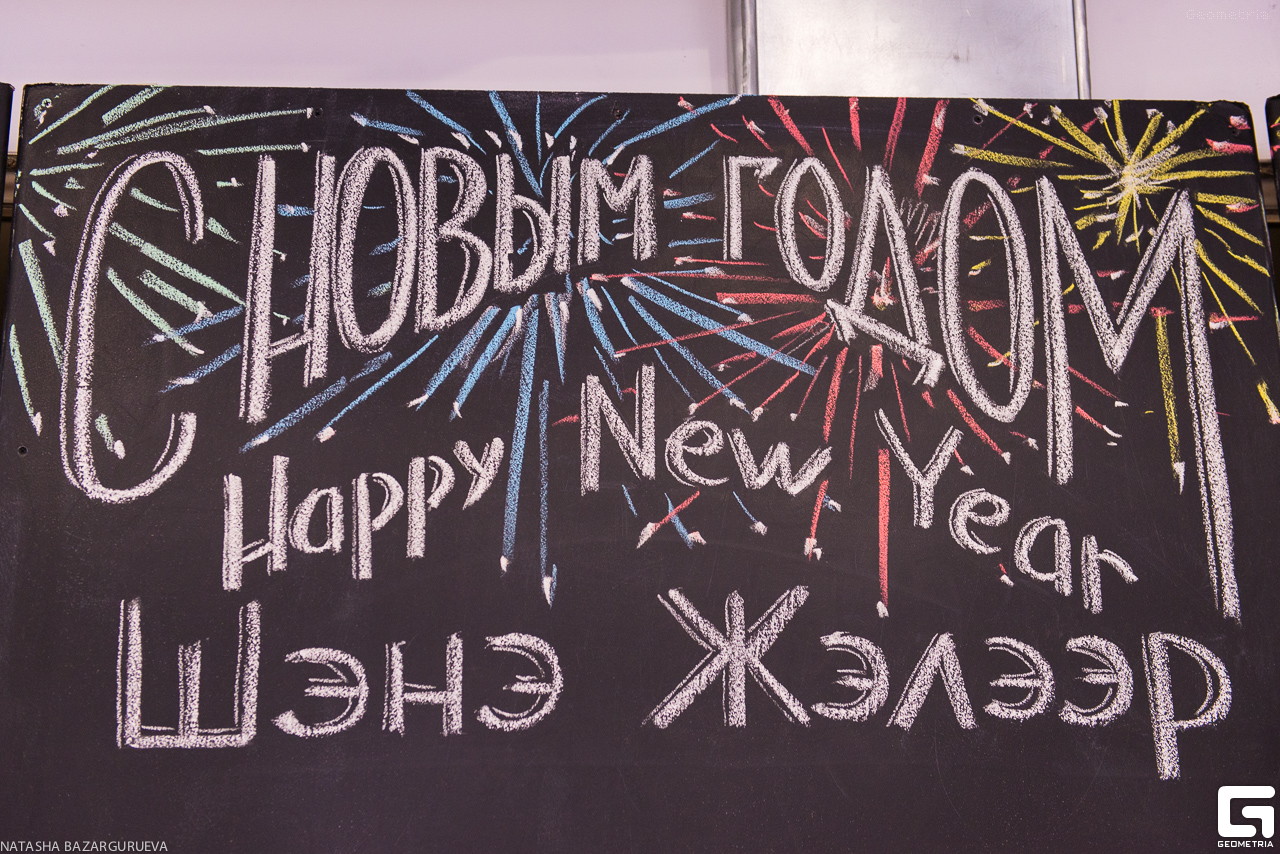 С НОВЫМ ГОДОМ
Happy New Year
Шэнэ Жэлээр
NATASHA BAZARGURUEVA
GEOMETRIA